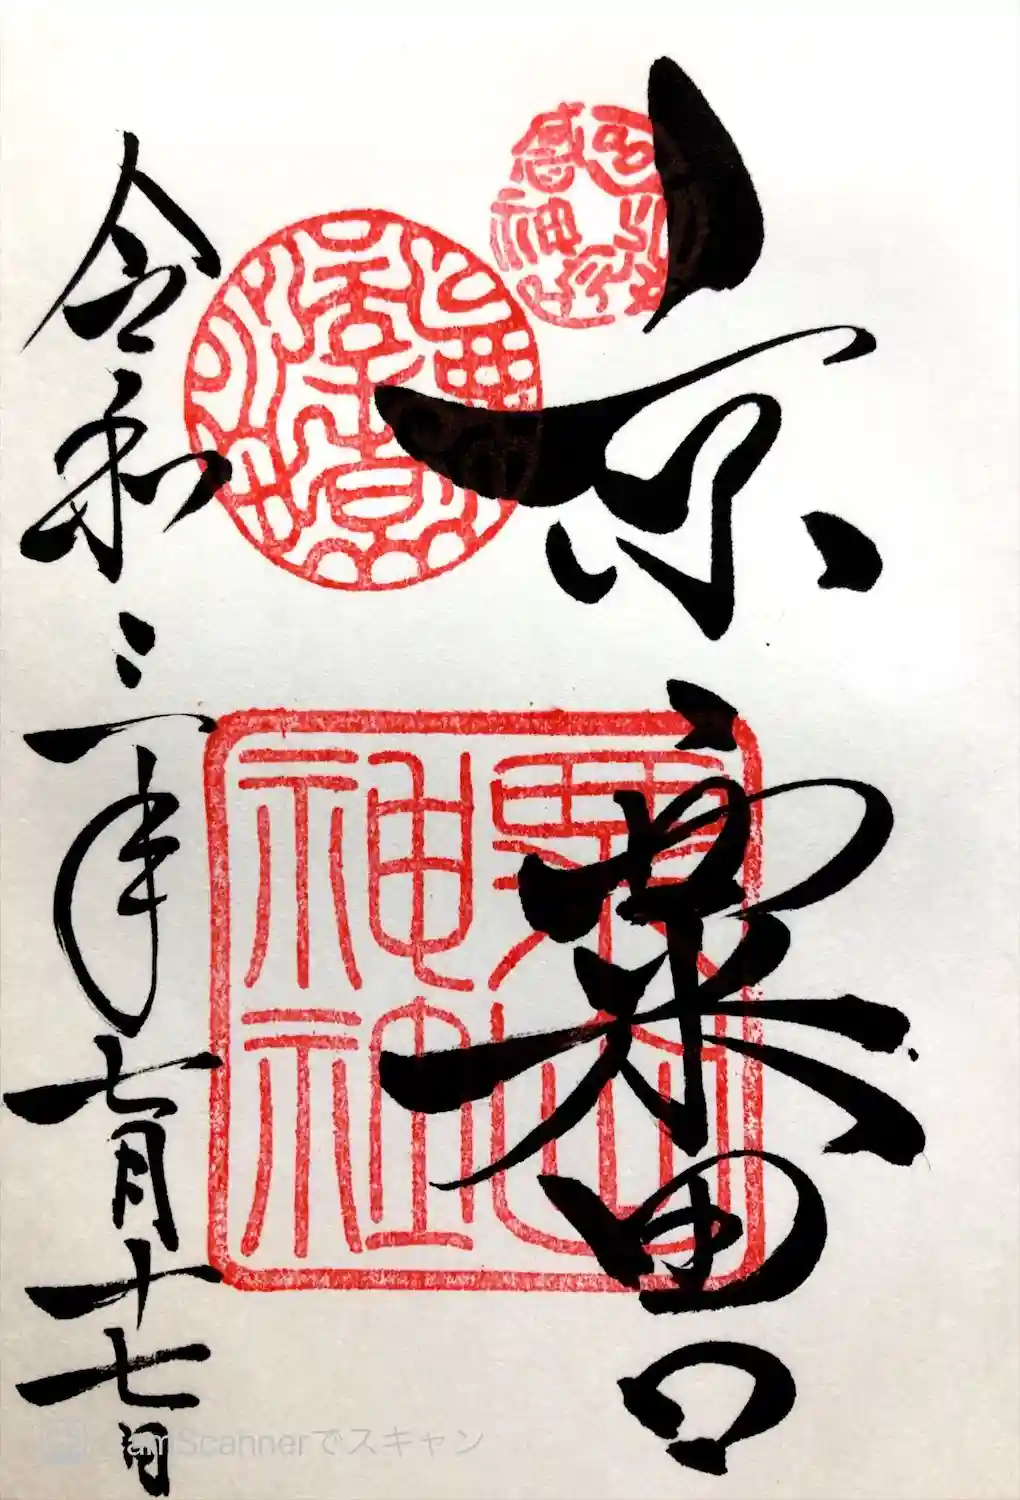 京 粟田口
粟田神社
令和三年七月十七日
CamScannerでスキャン